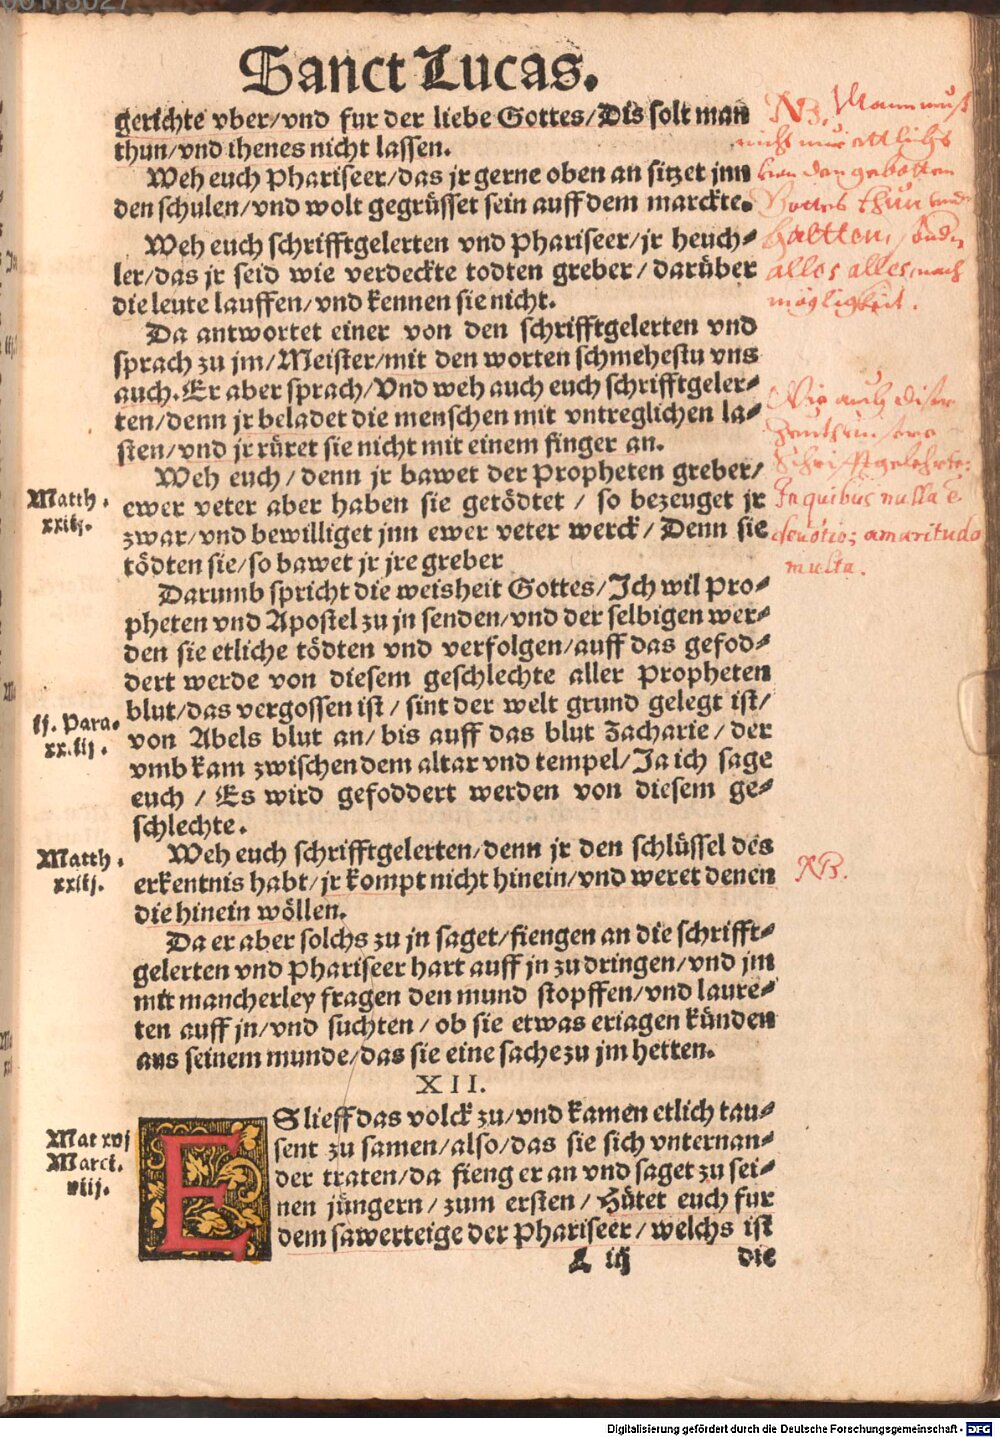 Sanct Lucas.
gerichte vber/vnd fur der liebe Gottes/Dis solt man
thun/vnd ihenes nicht lassen.
Weh euch Phariseer/das jr gerne oben an sitzet jnn
den schulen/vnd wolt gegrüsset sein auff dem marckte.
Weh euch schrifftgelerten vnd Phariseer/jr heuch-
ler/das jr seid wie verdeckte todten greber/darüber
die leute lauffen/vnd kennen sie nicht.
Da antwortet einer von den schrifftgelerten vnd
sprach zu jm/Meister/mit den worten schmehestu vns
auch. Er aber sprach/Vnd weh auch euch schrifftgeler-
ten/denn jr beladet die menschen mit vntreglichen la-
sten/vnd jr rüret sie nicht mit einem finger an.
Weh euch/denn jr bawet der Propheten greber/
ewer veter aber haben sie getödtet/so bezeuget jr
zwar/vnd bewilliget jnn ewer veter werck/Denn sie
tödten sie/so bawet jr jre greber
Darumb spricht die weisheit Gottes/Ich wil Pro-
pheten vnd Apostel zu jn senden/vnd der selbigen wer-
den sie etliche tödten vnd verfolgen/auff das gefod-
dert werde von diesem geschlechte aller Propheten
blut/das vergossen ist/sint der welt grund gelegt ist/
von Abels blut an/bis auff das blut Zacharie/der
vmb kam zwischen dem altar vnd tempel/Ja ich sage
euch/Es wird gefoddert werden von diesem ge-
schlechte.
Weh euch schrifftgelerten/denn jr den schlüssel des
erkentnis habt/jr kompt nicht hinein/vnd weret denen
die hinein wöllen.
Da er aber solchs zu jn saget/fiengen an die schrifft-
gelerten vnd Phariseer hart auff jn zu dringen/vnd jm
mit mancherley fragen den mund stopffen/vnd laure-
ten auff jn/vnd suchten/ob sie etwas eriagen künden
aus seinem munde/das sie eine sache zu jm hetten.
XII.
ES lieff das volck zu/vnd kamen etlich tau-
sent zu samen/also/das sie sich vnternan-
der traten/da fieng er an vnd saget zu sei-
nen jüngern/zum ersten/Hütet euch fur
dem sawerteige der Phariseer/welchs ist
L iij die
Matth.
xxiij.
ij. Para.
xx.iiij.
Matth.
xxiij.
Mat xvj
Marci.
viij.
NB. Mann muß
nicht nur ettliche
von den gebotten
Gottes thun und
haltten, sondern
alles alles nach
mögligkeit.
Wie auch diese
Schrifftgelehrte:
In quibus nulla ē
devotio; amaritudo
multa.
NB.
Digitalisierung gefördert durch die Deutsche Forschungsgemeinschaft - DFG